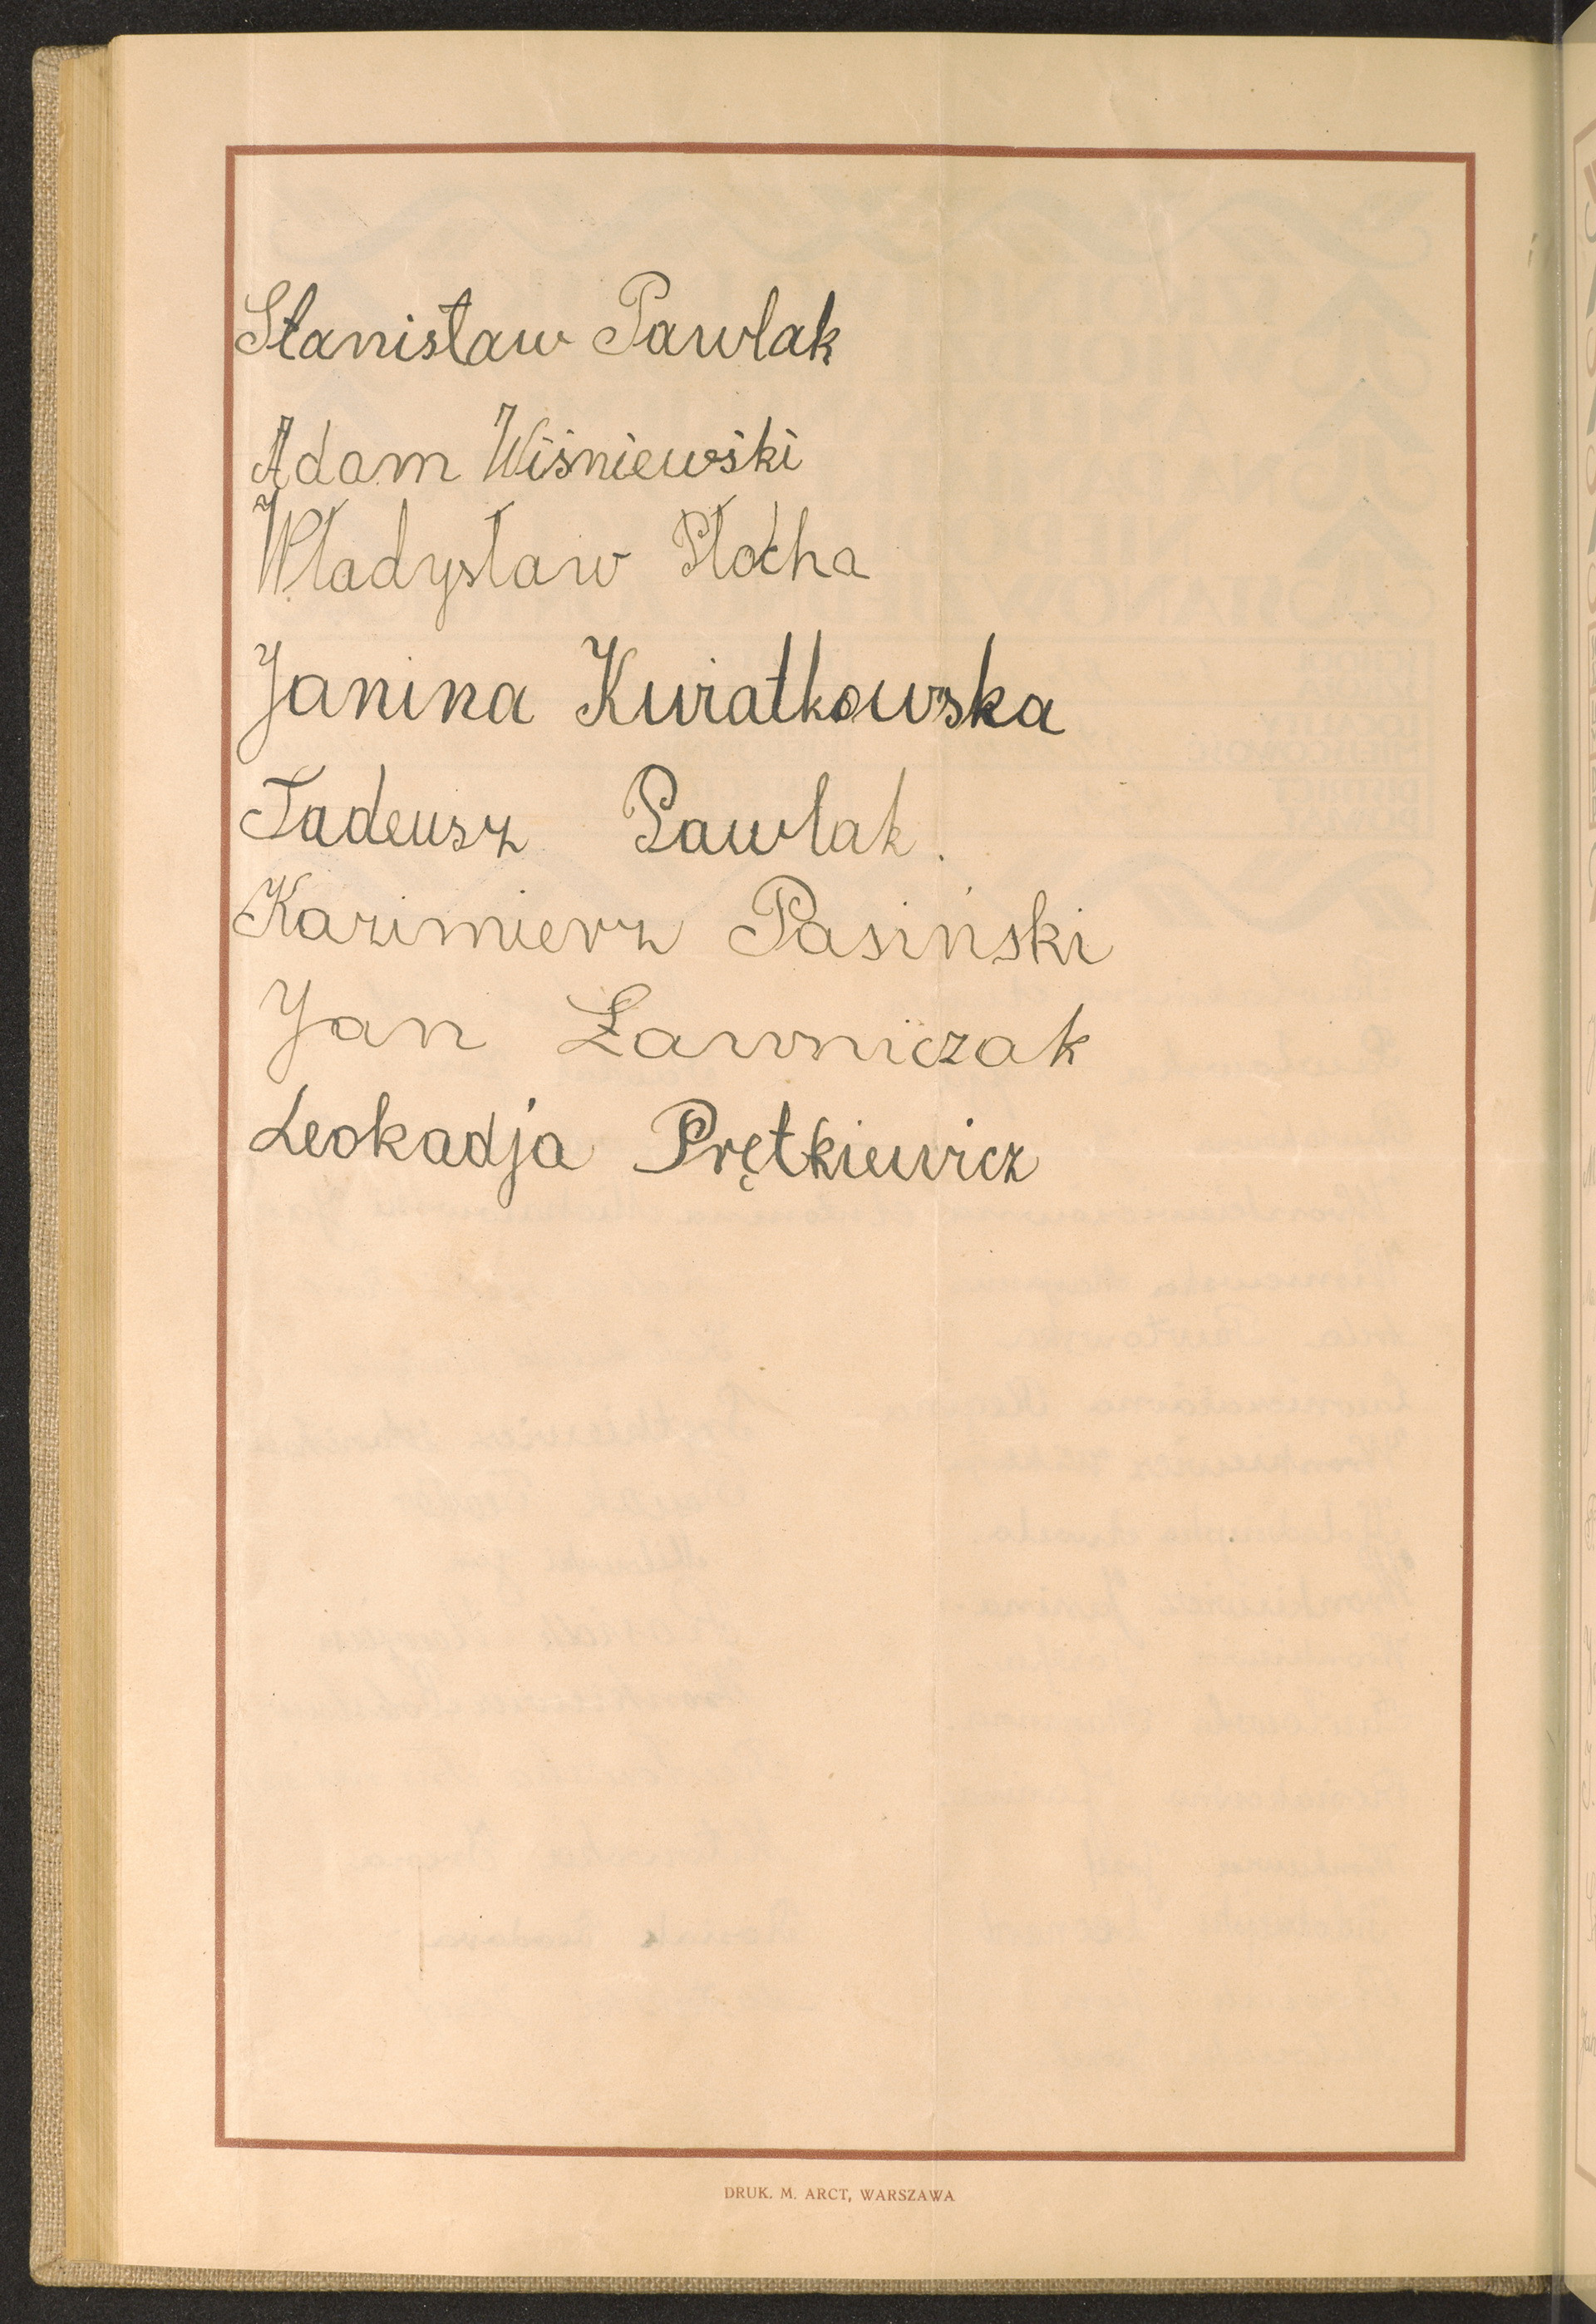 Stanisław Pawlak
Adam Wiśniewski
Władysław Płocha
Janina Kwiatkowska
Tadeusz Pawlak.
Kazimierz Pasiński
Jan Ławniczak
Leokadja Prętkiewicz
DRUK. M. ARCT, WARSZAWA